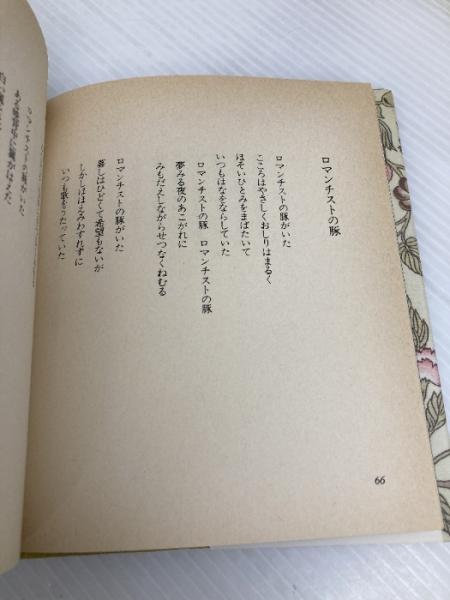 ロマンチストの豚
ロマンチストの豚がいた
こころはやさしくおしりはまるく
ほそいひとみをまばたいて
いつもはなをならしていた
ロマンチストの豚　ロマンチストの豚
夢みる夜のあこがれに
みもだえしながらせつなくねむる
ロマンチストの豚がいた
暮しはひどくて希望もないが
しかしほほえみわすれずに
いつも歌をうたっていた
66
ロマンチストの豚がいた
ある晩背中に翼がはえた